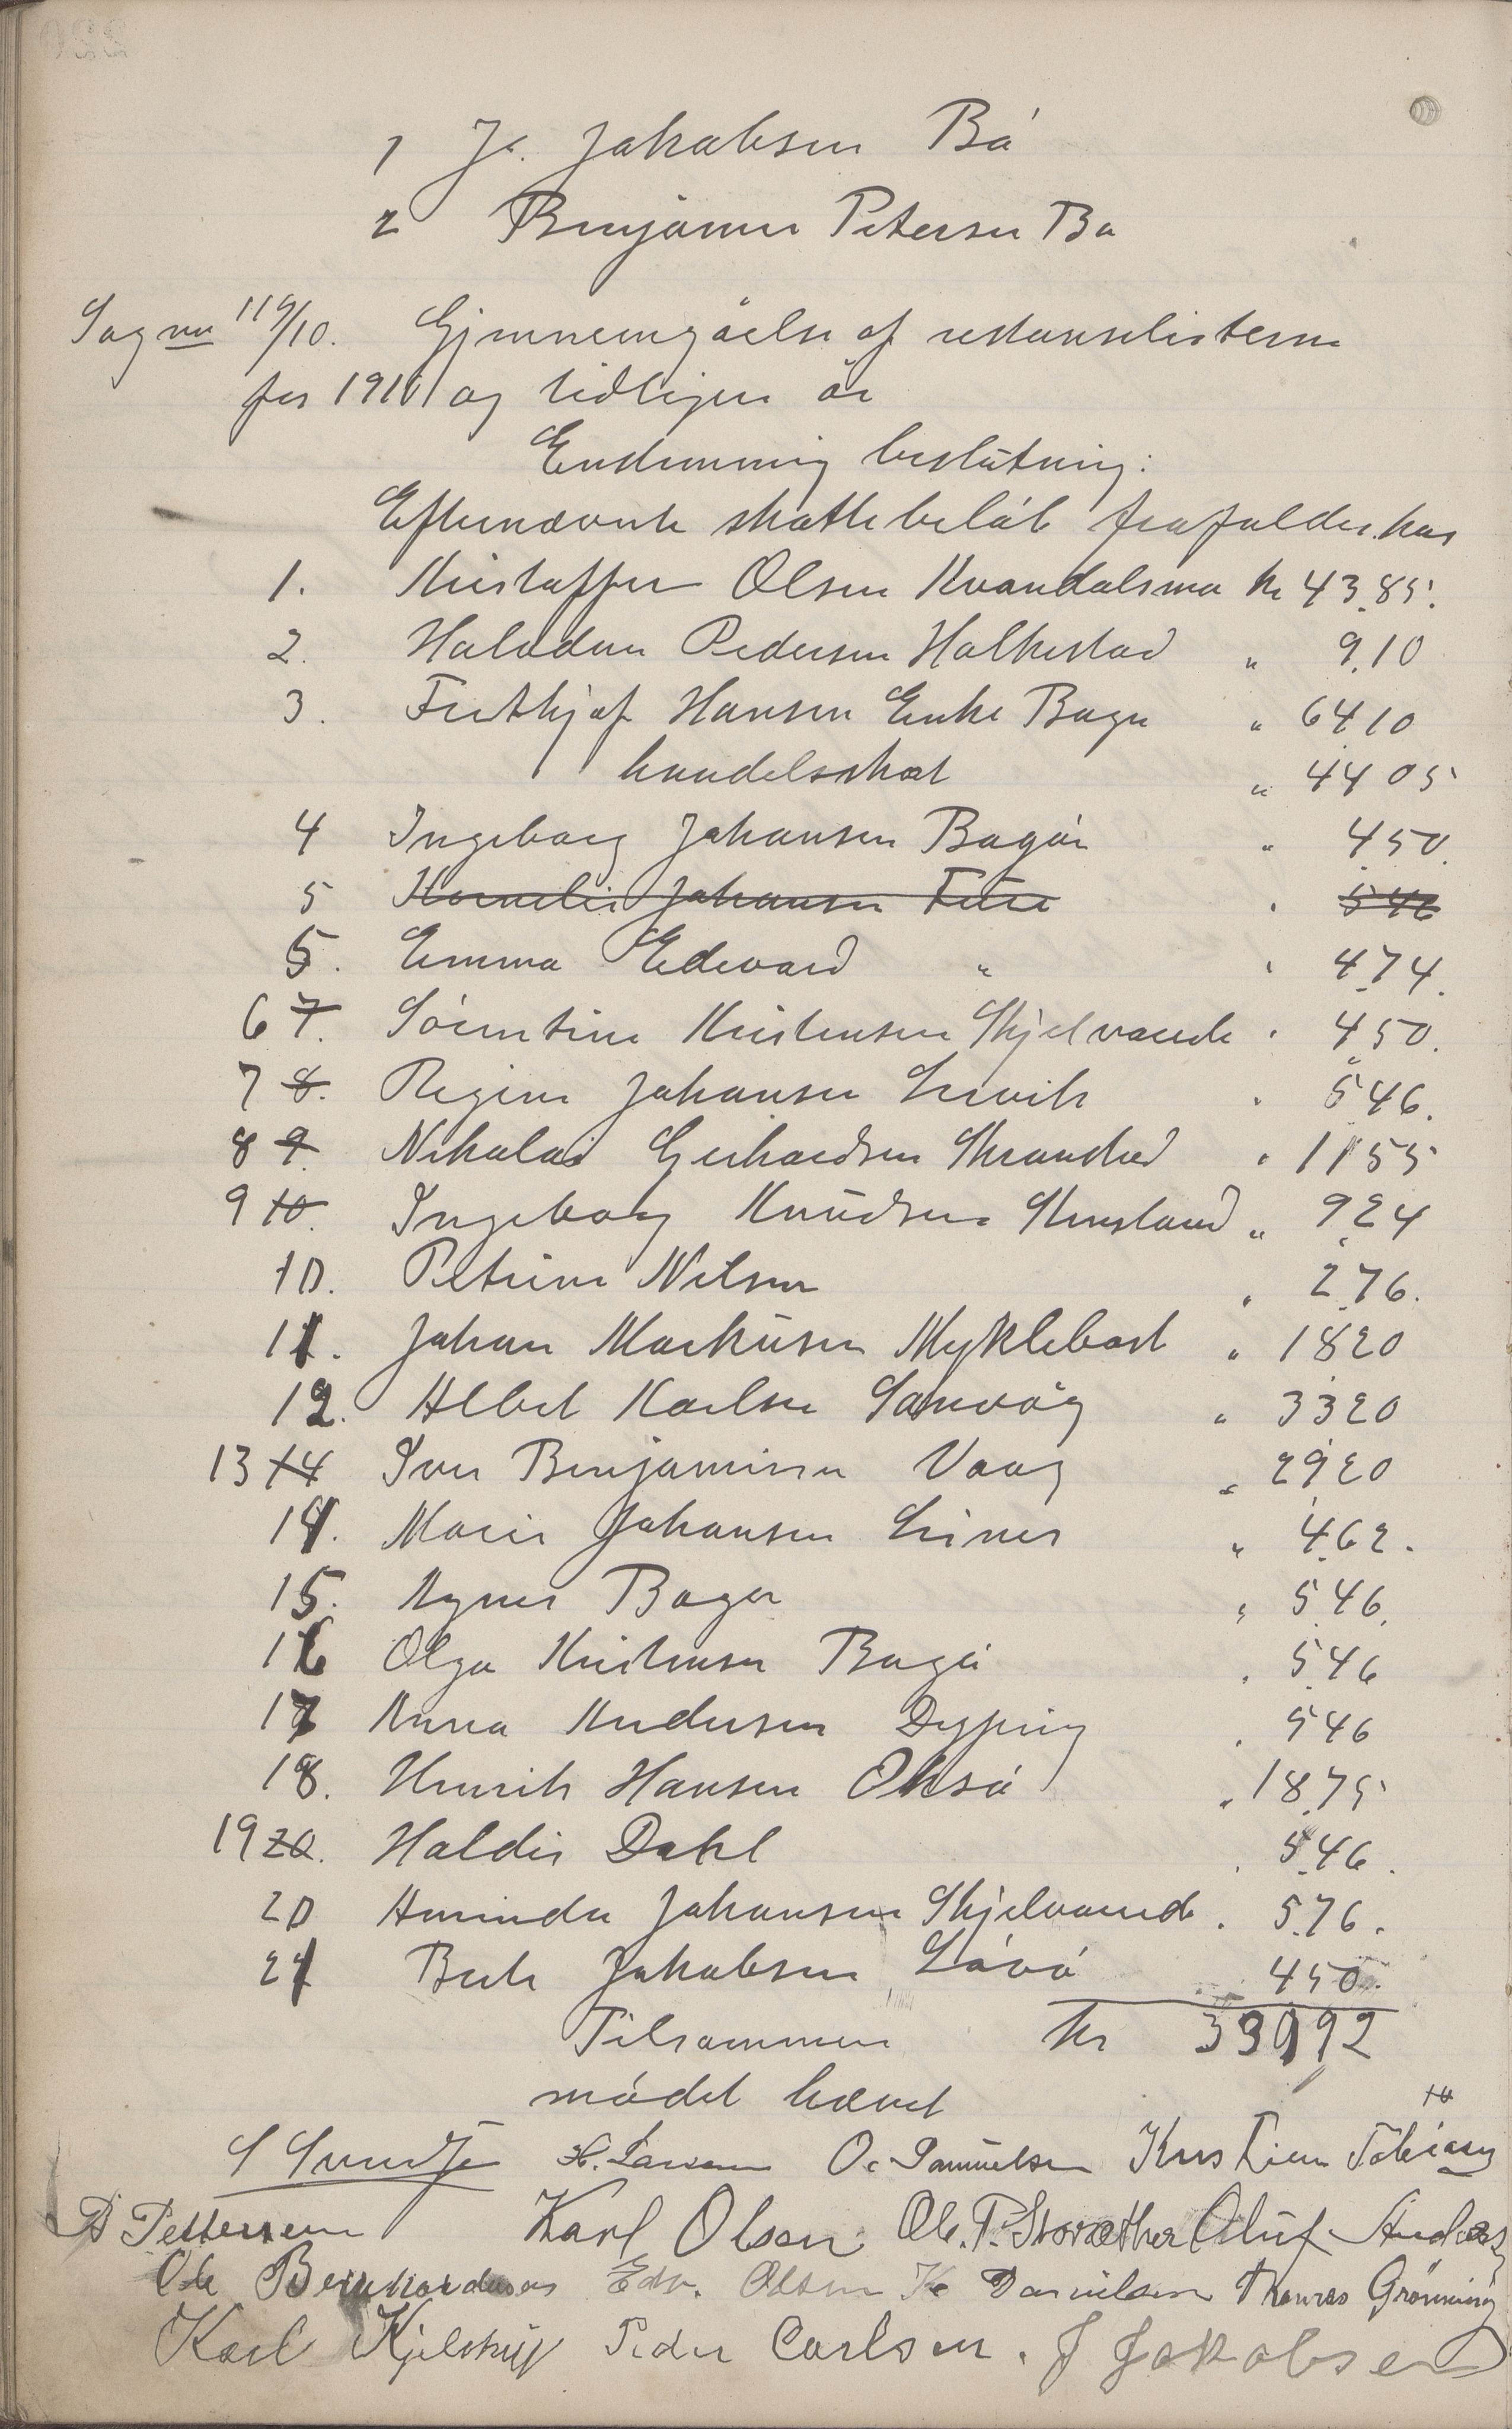 1 Js. Jakobsen Bø
2 Benjamin Petersen Bø
Sag nr 119/10. Gjennemgåelse af restanselisterne
for 1910 og tidligere år
Enstemmig beslutning:
Efternævnte skattebeløb frafaldes hos
1. Kristoffer Olsen Kvandalsmo kr 43.85.
2. Halvdan Pedersen Halkestad " 9.10
3. Frithjof Hansen Enke Bogen " 64.10
handelsskat " 44 05
4 Ingeborg Johansen Bogøen " 4.50.
5 Kornelie Johansen Fure " 5 46
5. Emma Edevard " " 4.74.
6 7. Sørentine Kristensen Skjelvareide " 4 50.
7 8. Regine Johansen Leivik " 5 46.
8 9. Nikolai Gerhardsen Skranstad " 11 55
9 10. Ingeborg Knudsen " 9 24
10. Petrine Nilsen " 2.76.
11. Johan Markusen Myklebost " 18 20
12. Albet Karlsen Sanvåg " 33 20
13 14 Iver Benjaminsen Vaag " 29 20
14. Marie Johansen Leines " 4.62.
15. Agnes Bogen " 5.46.
16 Olga Kristensen Bogø " 5.46
17 Anna Andersen Dyping " 5 46
18. Henrik Hansen Oksø " 18.75
19 20. Haldis Dahl " 5.46.
20 Aminda Johansen Skjelvareide . 5.76.
21 Berte Jakobsen Løvø 4 50.
Tilsammen kr 339 92
mødet hævet
S Sundsfj H. Larsen O. Samuelsen Kristian Tobiasen
P Pettersen Karl Olsen Ole T. Storæther Oluf Andersen
Ole Bernhardusen Edv. Olsen K Danielsen Thomas Grønning
Karl Kjelstrup Peder Carlsen. J Jakobsen